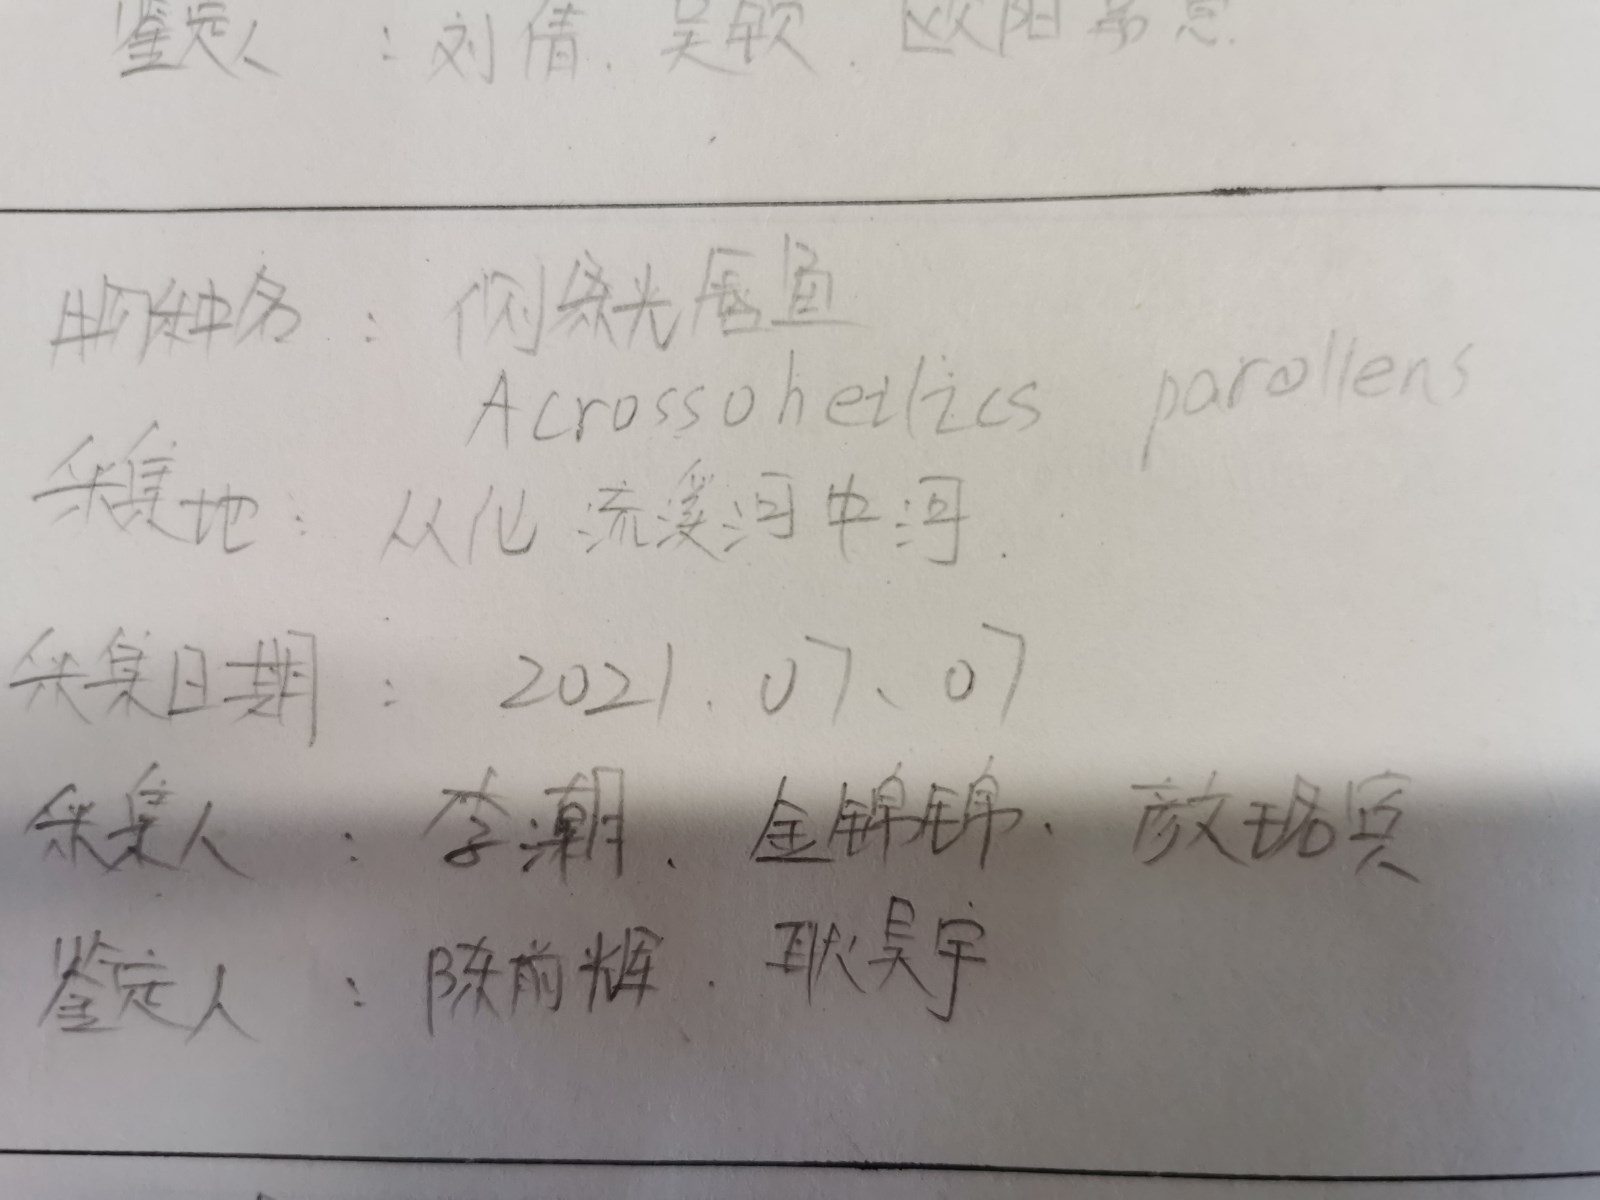 鉴定人：刘倩、吴钦、欧阳
物种名：侧条光唇鱼
Acrossoheilics parollens
采集地：从化流溪河中河.
采集日期：2021.07、07
采集人：李潮、金锦锦、颜珺宾
鉴定人：陈前辉、耿昊宇